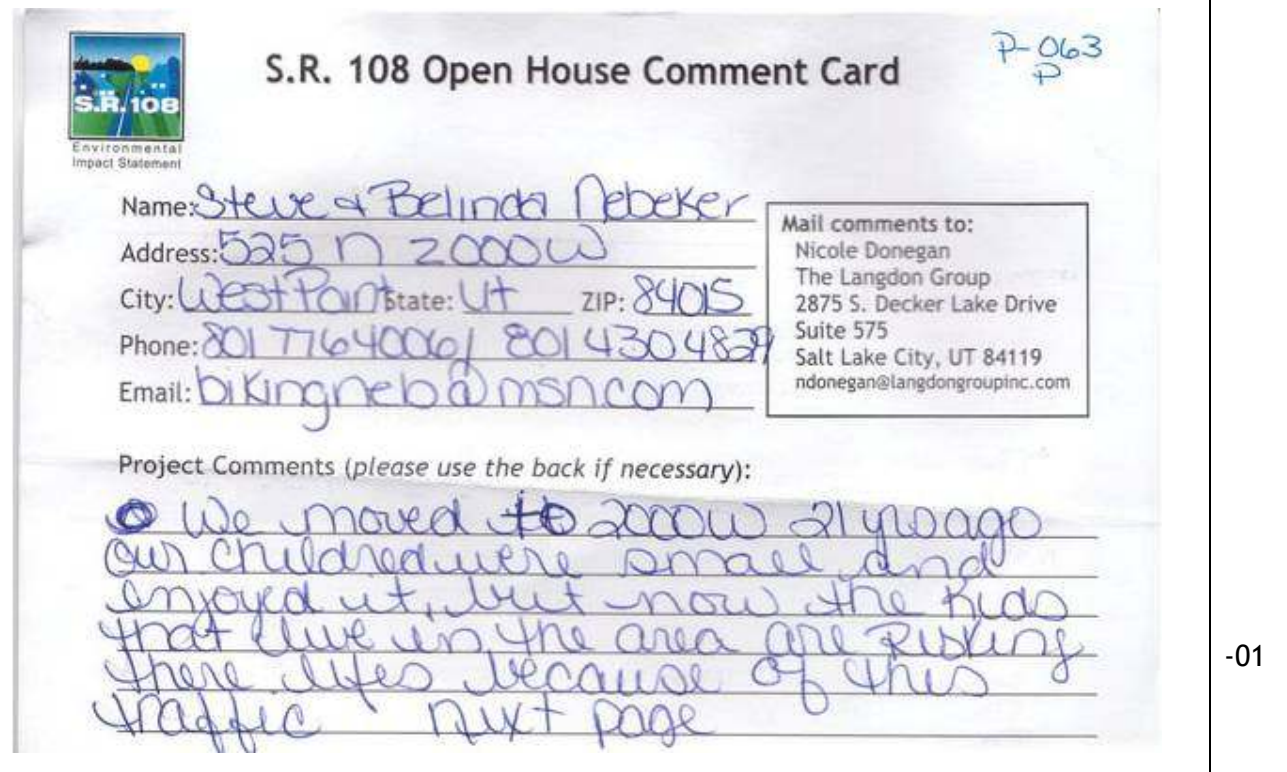 P-063
P
S.R. 108 Open House Comment Card
S.R. 108
Environmental
Impact Statement
Name: Steve & Belinda Nebeker
Address: 525 N 2000W
City: West Point State: Ut ZIP: 84015
Phone: 801 7764006/ 801 4304829
Email: bikingneb@msn.com
Mail comments to:
Nicole Donegan
The Langdon Group
2875 S. Decker Lake Drive
Suite 575
Salt Lake City, UT 84119
ndonegan@langdongroupinc.com
Project Comments (please use the back if necessary):
We moved to 2000W 21 yrs ago
our childred were small and
enjoyed it, but now the kids
that live in the area are Risking
there lifes because of this
traffic next page
-01